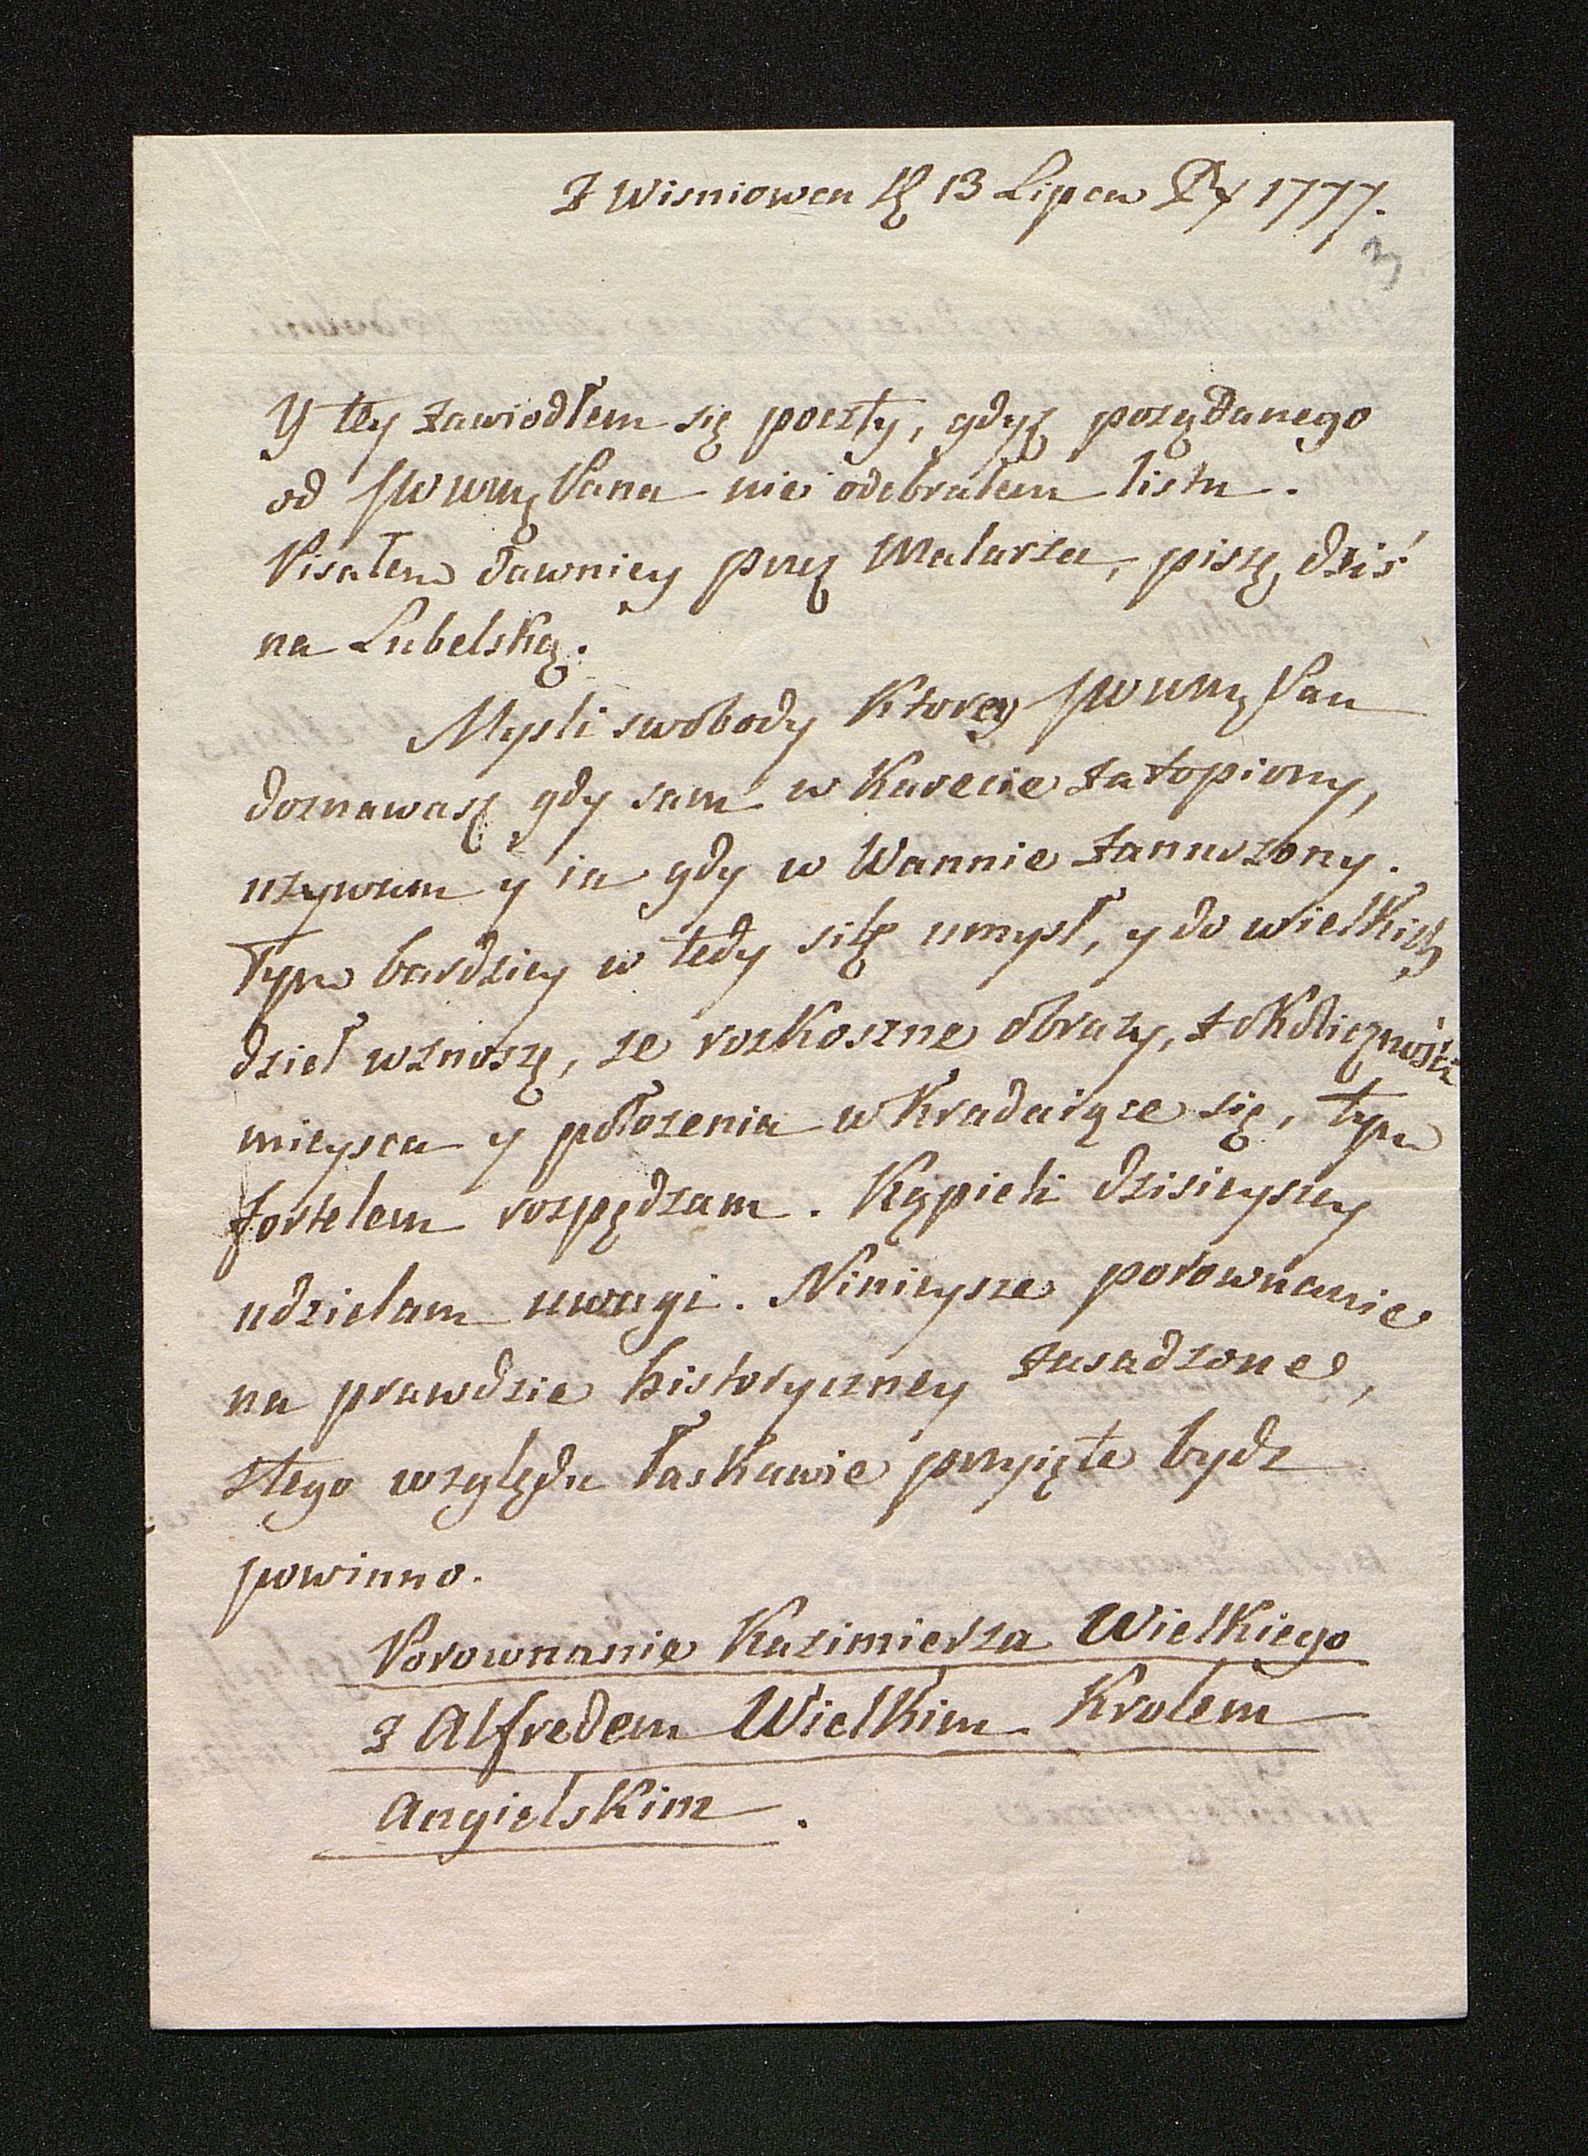 Z Wisniowca D 13 Lipca R 1777.
3
Y tey zawiodłem się poczty, gdyz poządanego
od JWWMę Pana nie odebrałem listu.
Pisałem dawniey przez Malarza, piszę dziś
na Lubelską.
Mysli swobody ktorey JWWMę Pan
doznawasz gdy sam w karecie zatopiony,
uzywam y ia gdy w Wannie zanurzony.
Tym bardziey w tedy silę umysł, y do wielkich
dzieł wznoszę, ze roskoszne obrazy, z okoliczności
mieysca y połozenia wkradaiące się, tym
fortelem rozpędzam. Kąpieli dzisieyszey
udzielam uwagi. Ninieysze porownanie
na prawdzie historyczney zasadzone,
ztego względu łaskawie przyięte bydz
powinno.
Porownanie Kazimierza Wielkiego
z Alfredem Wielkim Krolem
Angielskim.